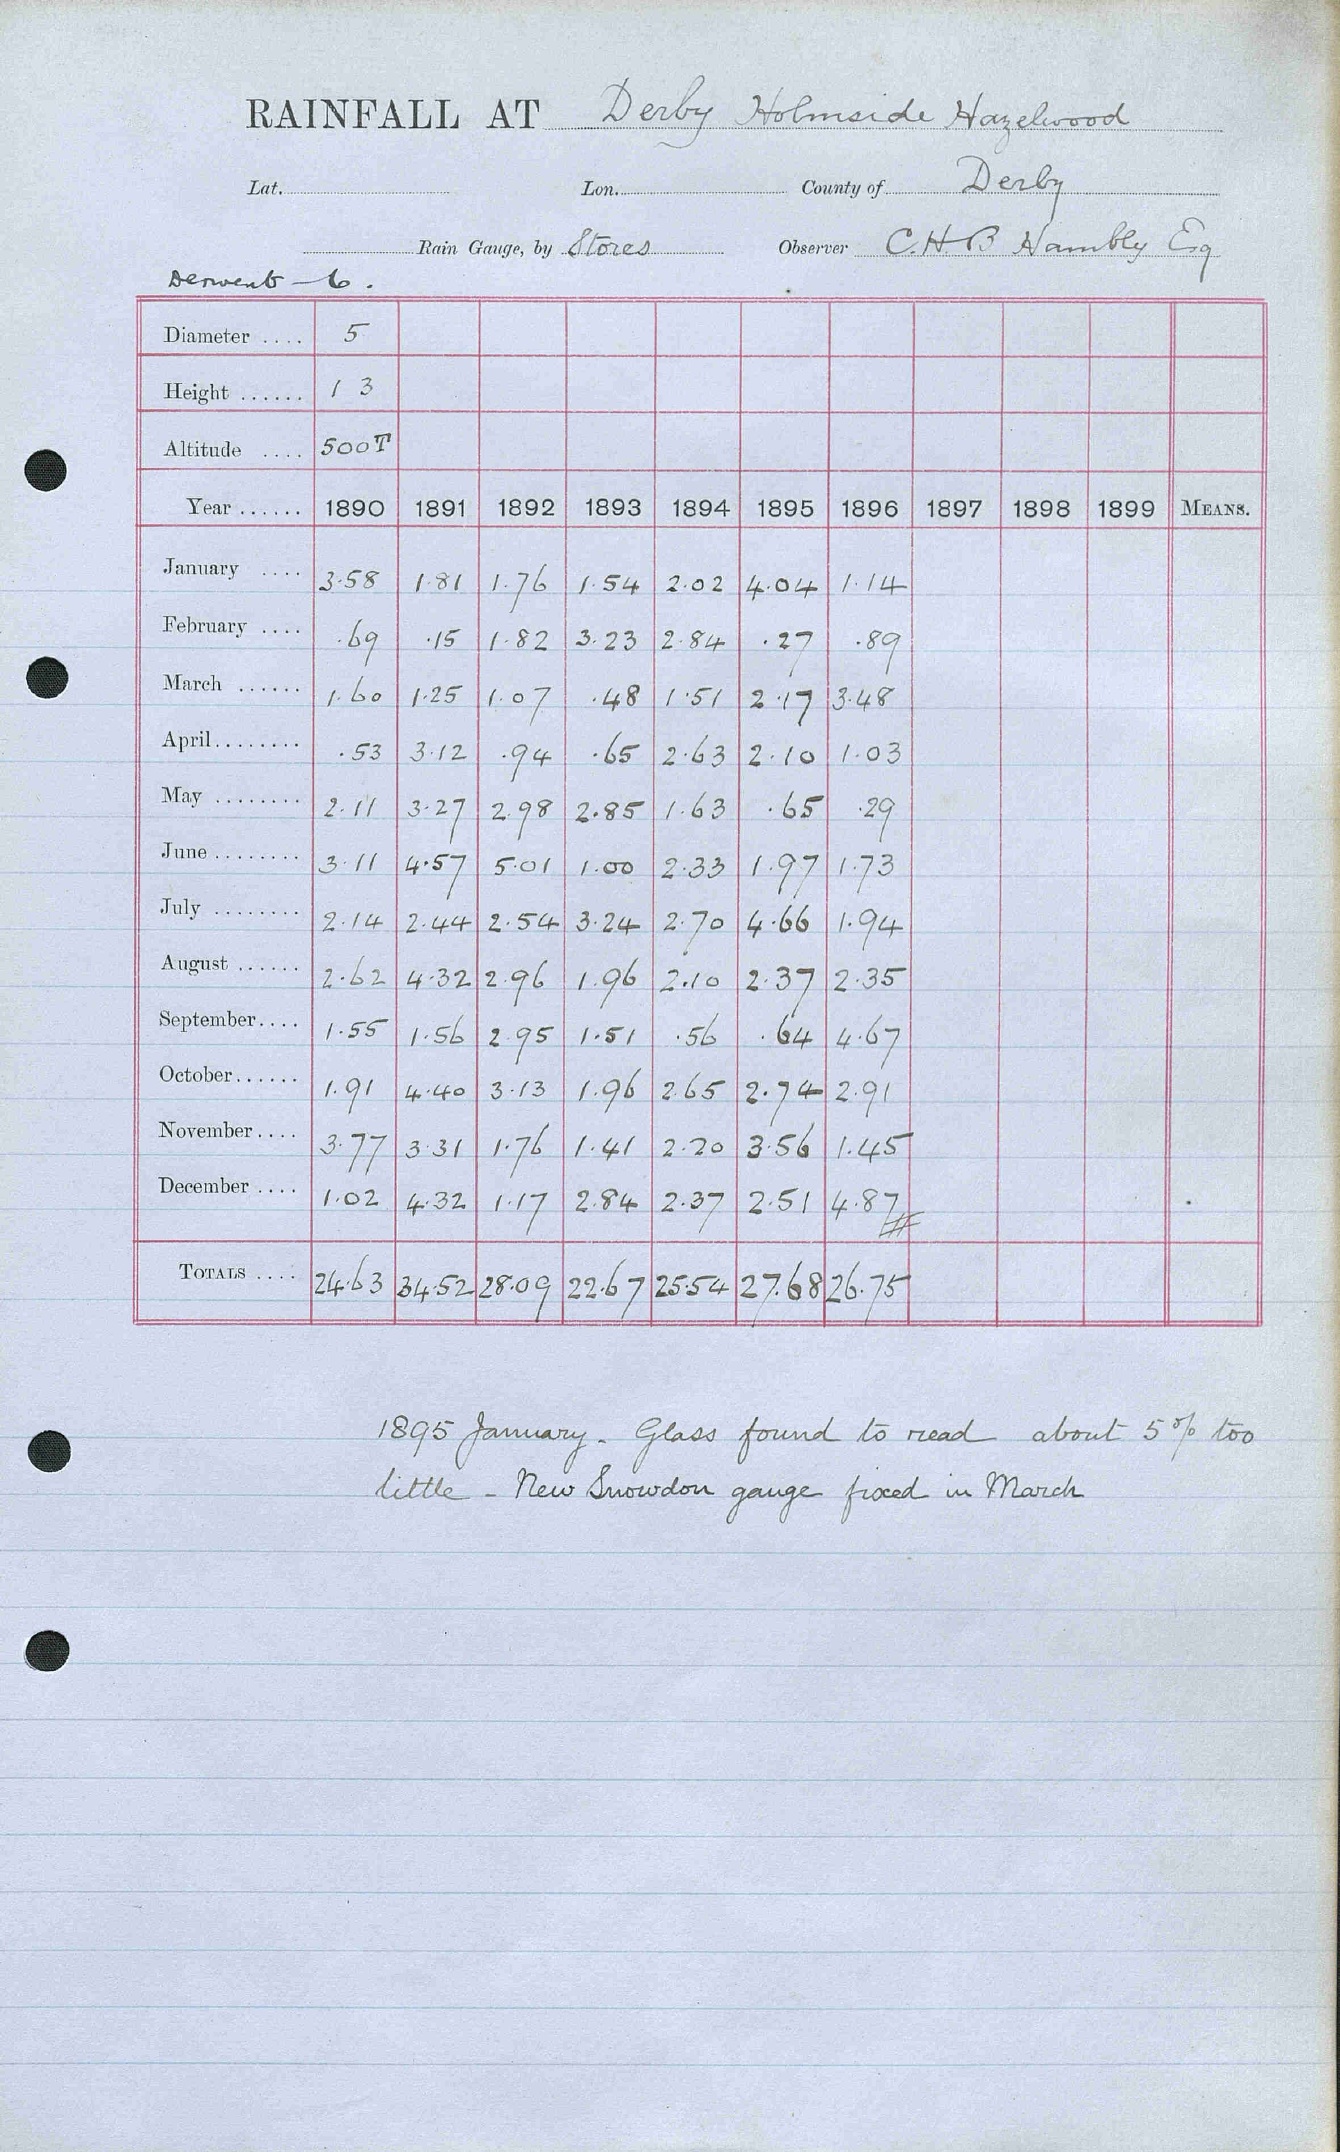 RAINFALL AT Derby Holmside Hazelwood
Lat. Lon. County of Derby
Rain Gauge, by Stores Observer C.H.B Hambly Esq
Derwent - 6.
Diameter .... 5
Height ...... 1 3
Altitude .... 500T
Year ...... 1890 1891 1892 1893 1894 1895 1896 1897 1898 1899 MEANS.
January .... 3.58 1.81 1.76 1.54 2.02 4.04 1.14
February .... .69 .15 1.82 3.23 2.84 .27 .89
March ...... 1.60 1.25 1.07 .48 1.51 2.17 3.48
April........ .53 3.12 .94 .65 2.63 2.10 1.03
May ........ 2.11 3.27 2.98 2.85 1.63 .65 .29
June ........ 3.11 4.57 5.01 1.00 2.33 1.97 1.73
July ........ 2.14 2.44 2.54 3.24 2.70 4.66 1.94
August ...... 2.62 4.32 2.96 1.96 2.10 2.37 2.35
September.... 1.55 1.56 2.95 1.51 .56 .64 4.67
October...... 1.91 4.40 3.13 1.96 2.65 2.74 2.91
November.... 3.77 3.31 1.76 1.41 2.20 3.56 1.45
December .... 1.02 4.32 1.17 2.84 2.37 2.51 4.87
TOTALS .... 24.63 34.52 28.09 22.67 25.54 27.68 26.75
1895 January. Glass found to read about 5% too
little - New Snowdon gauge fixed in March